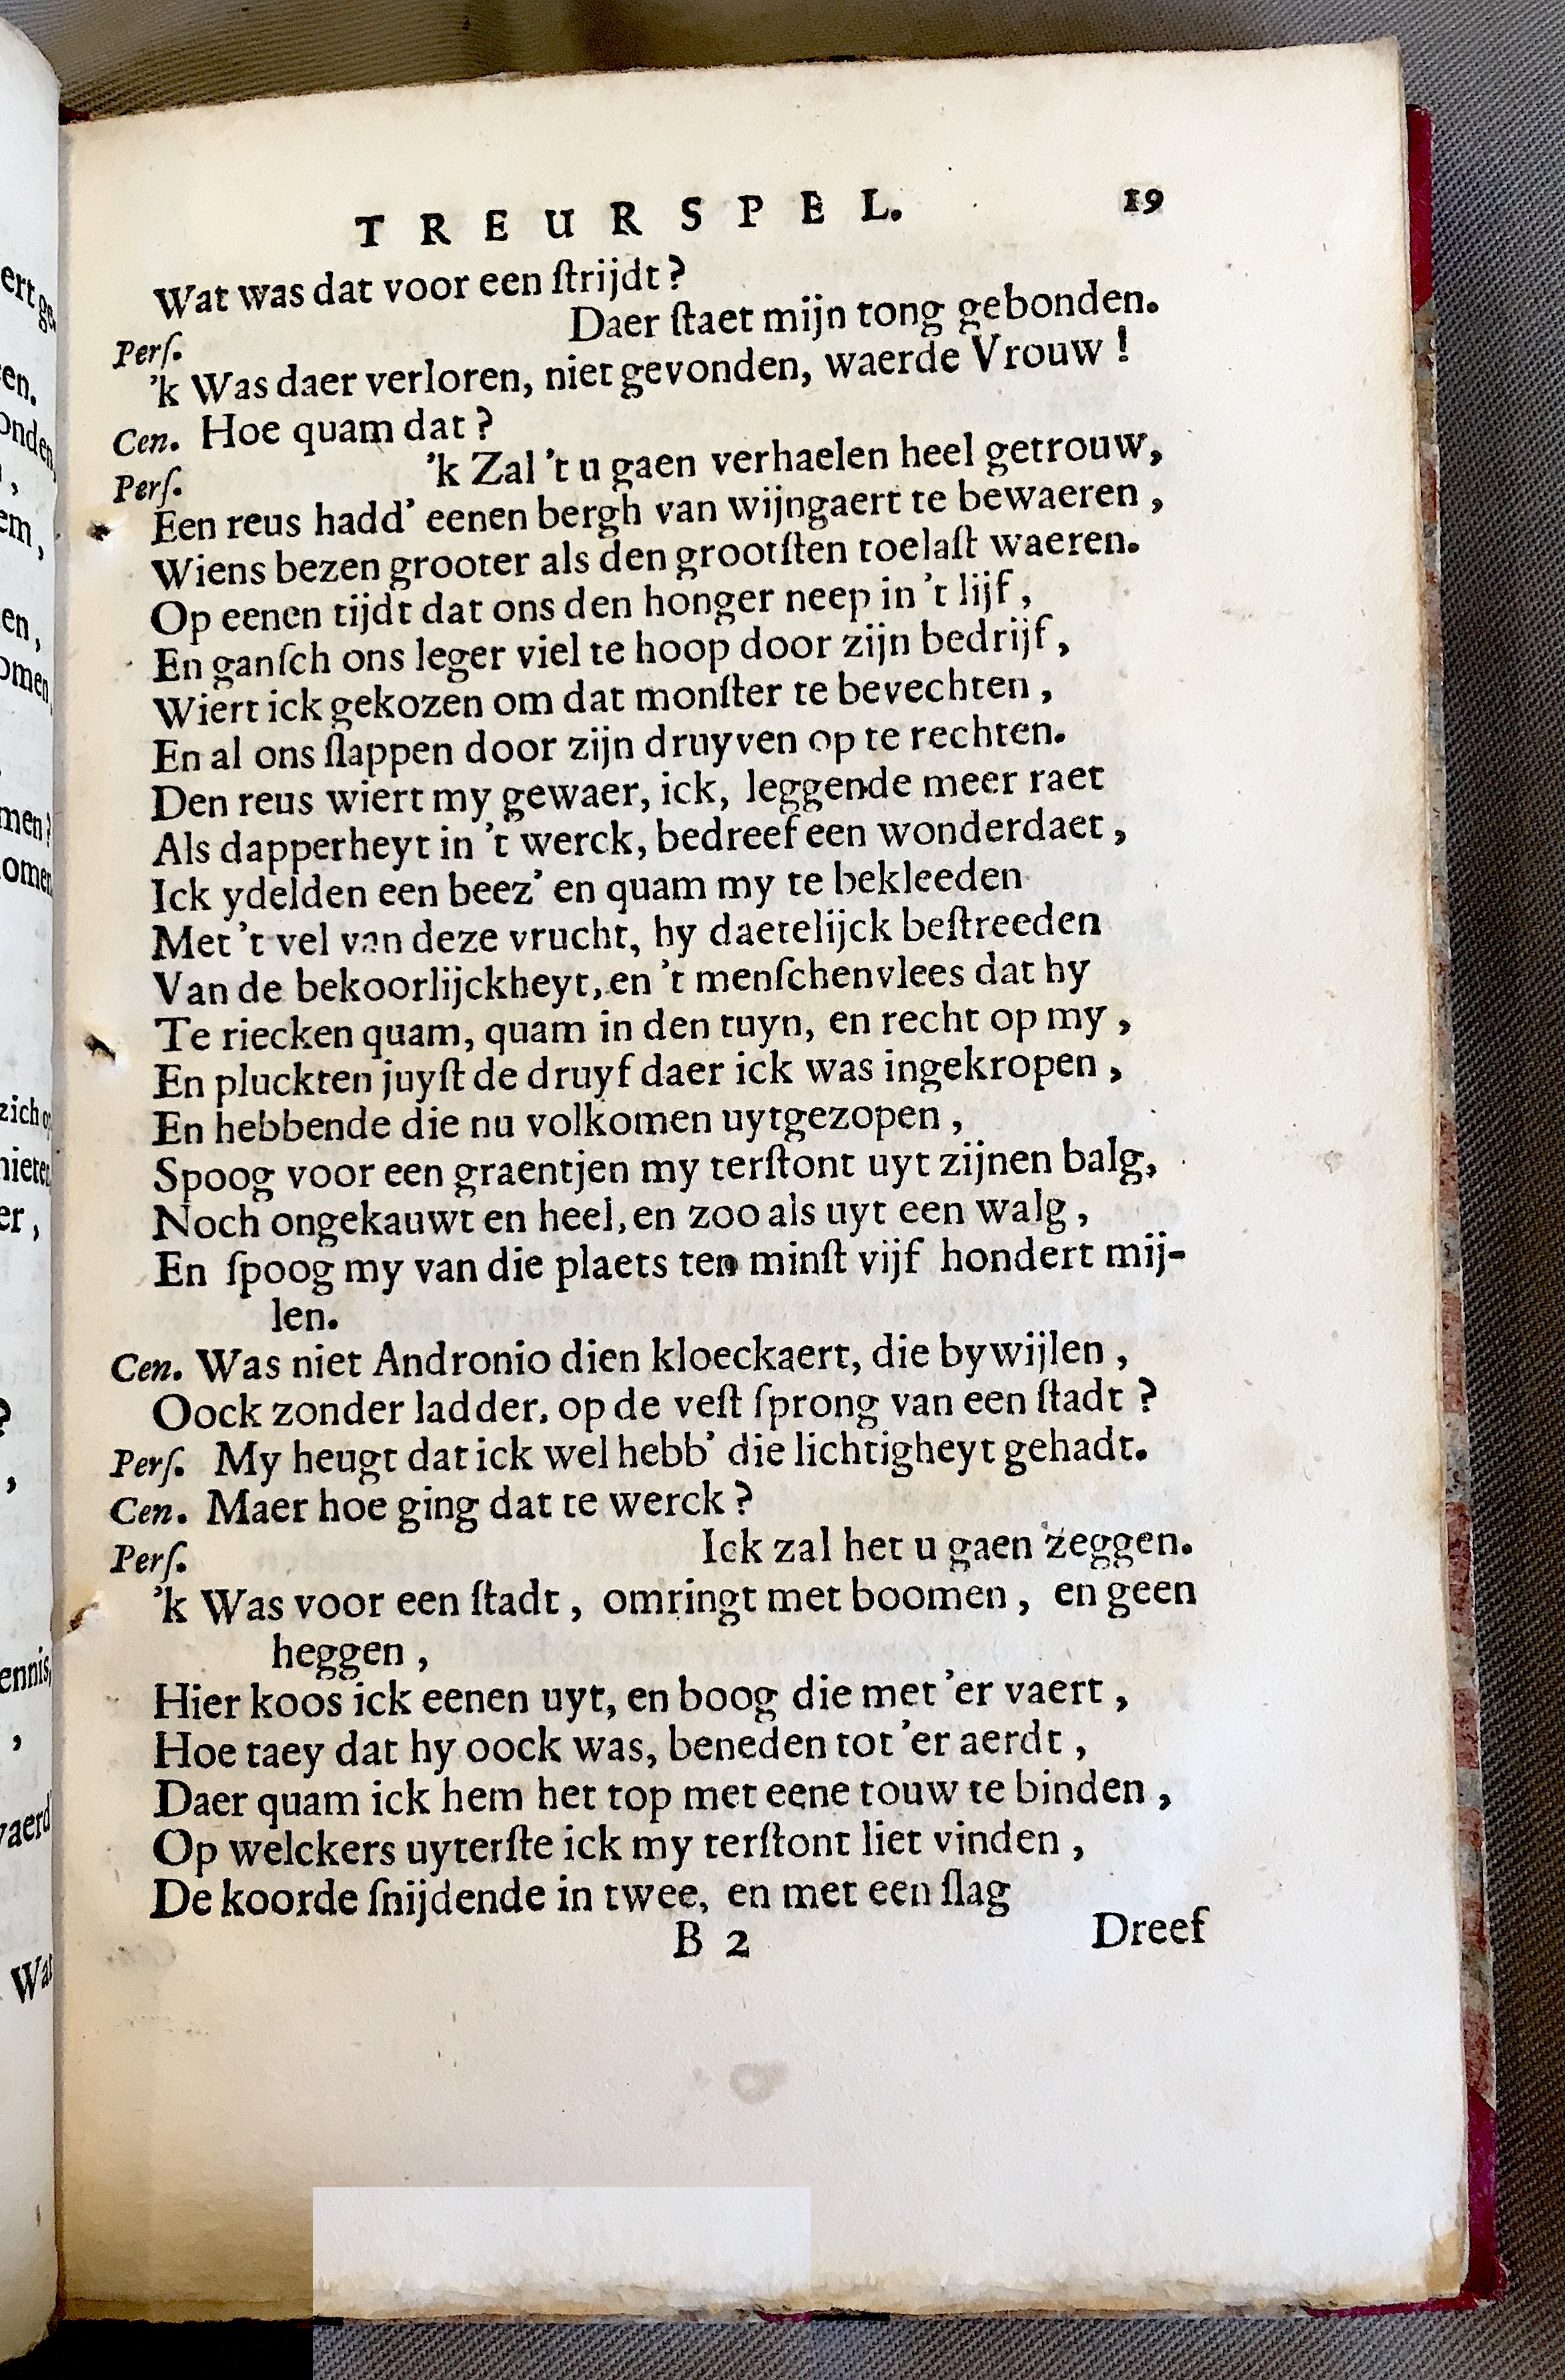 TREURSPEL. 19
Wat was dat voor een ſtrijdt?
Perſ. Daer ſtaet mijn tong gebonden.
'k Was daer verloren, niet gevonden, waerde Vrouw!
Cen. Hoe quam dat?
Perſ. 'k Zal 't u gaen verhaelen heel getrouw,
Een reus hadd' eenen bergh van wijngaert te bewaeren,
Wiens bezen grooter als den grootſten toelaſt waeren.
Op eenen tijdt dat ons den honger neep in 't lijf,
En ganſch ons leger viel te hoop door zijn bedrijf,
Wiert ick gekozen om dat monſter te bevechten,
En al ons ſlappen door zijn druyven op te rechten.
Den reus wiert my gewaer, ick, leggende meer raet
Als dapperheyt in 't werck, bedreef een wonderdaet,
Ick ydelden een beez' en quam my te bekleeden
Met 't vel van deze vrucht, hy daetelijck beſtreeden
Van de bekoorlijckheyt, en 't menſchenvlees dat hy
Te riecken quam, quam in den tuyn, en recht op my,
En pluckten juyſt de druyf daer ick was ingekropen,
En hebbende die nu volkomen uytgezopen,
Spoog voor een graentjen my terſtont uyt zijnen balg,
Noch ongekauwt en heel, en zoo als uyt een walg,
En ſpoog my van die plaets ten minſt vijf hondert mij-
len.
Cen. Was niet Andronio dien kloeckaert, die bywijlen,
Oock zonder ladder, op de veſt ſprong van een ſtadt?
Perſ. My heugt dat ick wel hebb' die lichtigheyt gehadt.
Cen. Maer hoe ging dat te werck?
Perſ. Ick zal het u gaen zeggen.
'k Was voor een ſtadt, omringt met boomen, en geen
heggen,
Hier koos ick eenen uyt, en boog die met 'er vaert,
Hoe taey dat hy oock was, beneden tot 'er aerdt,
Daer quam ick hem het top met eene touw te binden,
Op welckers uyterſte ick my terſtont liet vinden,
De koorde ſnijdende in twee, en met een ſlag
B 2 Dreef